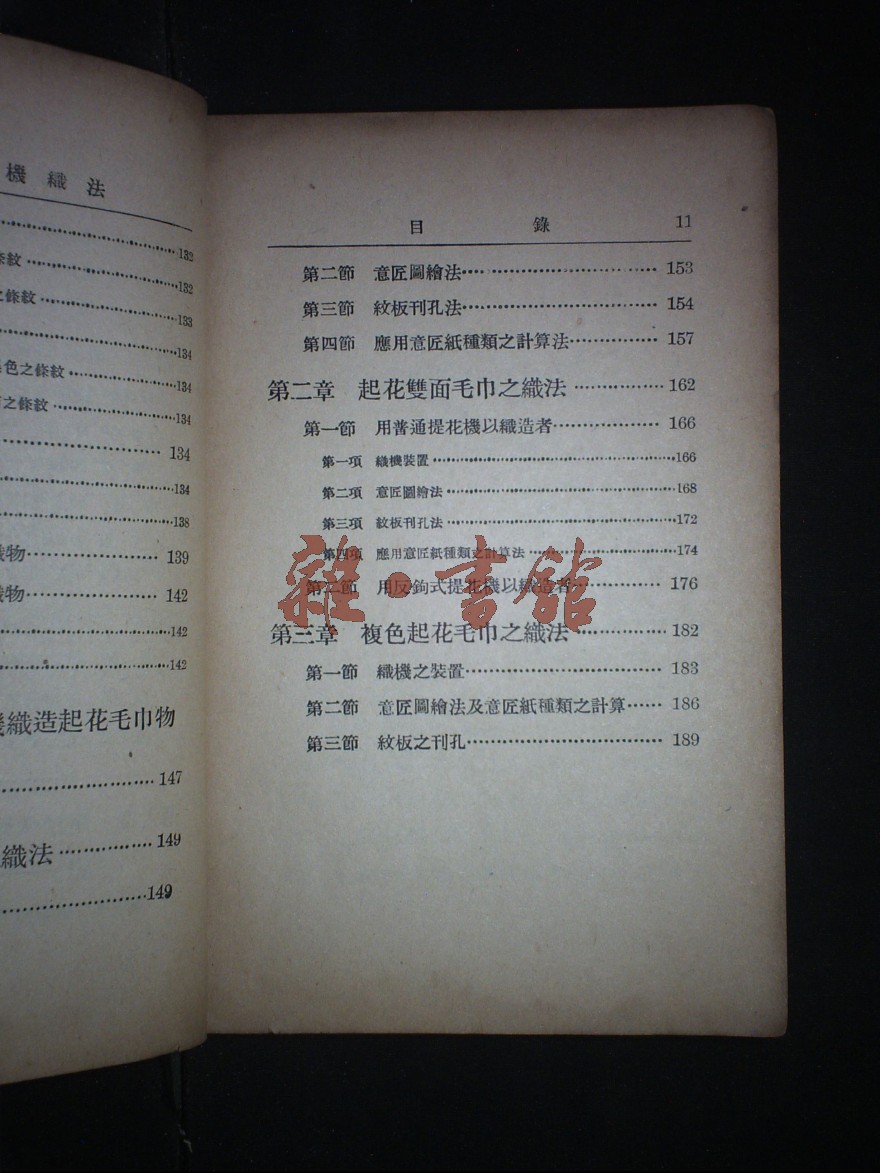 機織法
132
條紋 132
之條紋 133
134
色之條紋 134
之條紋 134
134
134
138
織物 139
織物 142
142
142
機織造起花毛巾物
147
織法 149
149
目錄 11
第二節 意匠圖繪法 153
第三節 紋板刊孔法 154
第四節 應用意匠紙種類之計算法 157
第二章 起花雙面毛巾之織法 162
第一節 用普通提花機以織造者 166
第一項 織機裝置 166
第二項 意匠圖繪法 168
第三項 紋板刊孔法 172
第四項 應用意匠紙種類之計算法 174
第二節 用反鉤式提花機以織造者 176
第三章 複色起花毛巾之織法 182
第一節 織機之裝置 183
第二節 意匠圖繪法及意匠紙種類之計算 186
第三節 紋板之刊孔 189
雜·書舘